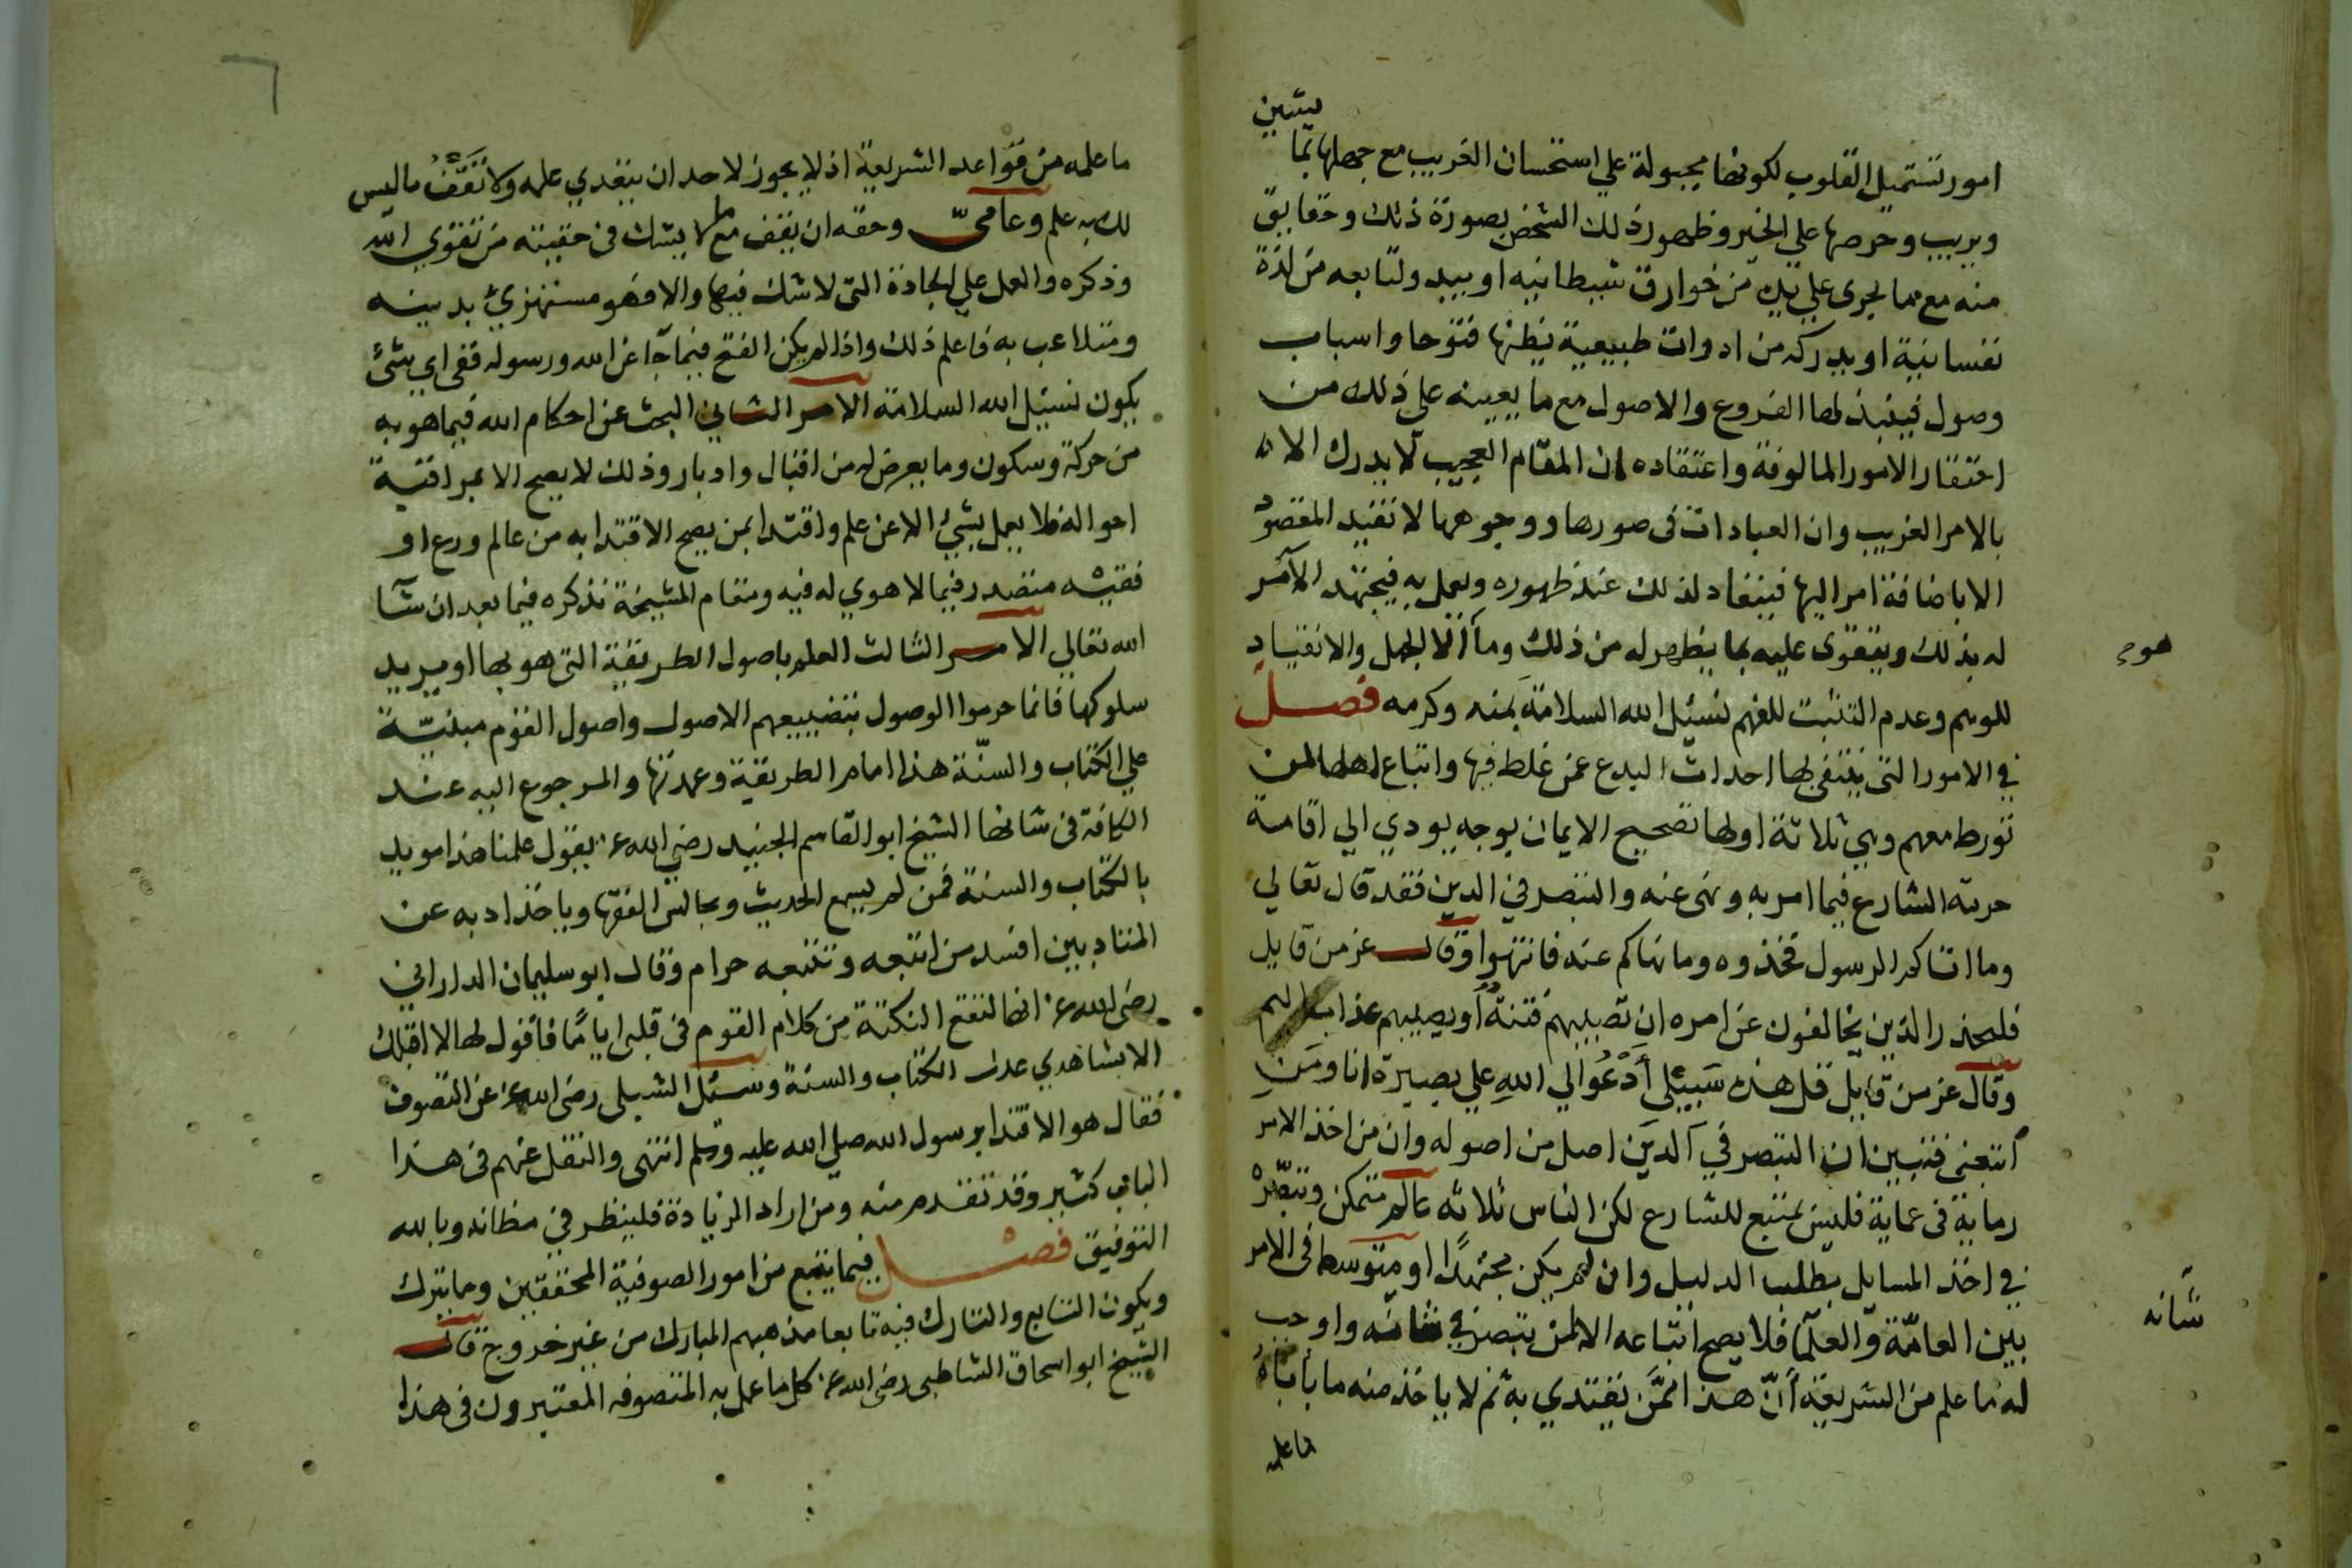 يشين
امور تستميل القلوب لكونها مجبولة علي استحسان الغريب مع جهلها بما
ويريب وحرصها علي الخير وظهور ذلك الشخص بصورة ذلك وحقايق
منه مع مما يجري علي يديه من خوارق شيطانيه او يبديه ولتابعه من لذة
نفسانية او يدركه من ادوات طبيعية يظنها فتوحا واسباب
وصول فينبذ لها الفروع والاصول مع ما يعينه علي ذلك من
احتقار الامور المالوفة واعتقاده ان المقام العجيب لا يدرك الا
بالامر الغريب وان العبادات في صورها ووجوهها لا تفيد المقصود
الا باضافة امر اليها فينقاد لذلك عند ظهوره ويعمل به فيجتهد الآمر
له بذلك ويتقوى عليه بما يظهر له من ذلك وما الا الجهل والانقياد
هو ح
للوهم وعدم التثبت للفهم نسئل الله السلامة بمنه وكرمه فصل
في الامور التي ينتفي بها احداث البدع عمن غلط فيها واتباع اهلها لمن
تورط معهم وهي ثلاثة اولها تصحيح الايمان بوجه يودي الي اقامة
حرمة الشارع فيما امر به ونهى عنه والتبصر في الدين فقد قال تعالي
وما اتاكم الرسول فخذوه وما نهاكم عنه فانتهوا وقال عز من قايل
فليحذر الذين يخالفون عن امره ان تصيبهم فتنة أو يصيبهم عذاب اليم
وقال عز من قايل قل هذه سبيلي أدعوا الي الله علي بصيرة انا ومن
اتبعني فتبين ان التبصر في الدين اصل من اصوله وان من اخذ الامر
رماية في عماية فليس بمتبع للشارع لكن الناس ثلاثه عالم متمكن وتبصّره
في اخذ المسايل بطلب الدليل وان لم يكن مجتهدًا او متوسط في الامر
بين العامّة والعلما فلا يصح اتباعه الا لمن يتبصر في شانه واوجب
شانه
له ما علم من الشريعة أنّ هذا ممن يقتدي به ثم لا ياخذ منه ما ياباه
ما علمه
٦
ما علمه من قواعد الشريعة اذ لا يجوز لاحد ان يتعدي علمه ولا تقف ما ليس
لك به علم وعامي وحقه ان يقف مع ما لا يشك في حقيته من تقوي الله
وذكره والعمل علي الجادة التي لا شك فيها والا فهو مستهزئ بدينه
ومتلاعب به فاعلم ذلك واذا لم يكن الفتح فيما جا عن الله ورسوله ففي اي شئ
يكون نسئل الله السلامة الامر الثاني البحث عن احكام الله فيما هو به
من حركة وسكون وما يعرض له من اقبال وادبار وذلك لا يصح الا بمراقبة
احواله فلا يعمل بشئ الا عن علم واقتدا بمن يصح الاقتدا به من عالم ورع او
فقيه متصدر فيما لا هوي له فيه ومقام المشيخة نذكره فيما بعد ان شا
الله تعالي الامر الثالث العلم باصول الطريقة التي هو بها او يريد
سلوكها فانما حرموا الوصول بتضييعهم الاصول واصول القوم مبنيّة
علي الكتاب والسنّة هذا امام الطريقة وعمدتها والمرجوع اليه عند
الكافة في شانها الشيخ ابو القاسم الجنيد رضي الله عنه يقول علمنا هذا مويد
بالكتاب والسنة فمن لم يسمع الحديث ويجالس الفقها وياخذ ادبه عن
المتادبين افسد من اتبعه وتتبعه حرام وقال ابو سليمان الداراني
رضي الله عنه انها لتقع النكتة من كلام القوم في قلبي ايامًا فاقول لها لا اقبلك
الا بشاهدي عدل الكتاب والسنة وسئل الشبلي رضي الله عنه عن التصوف
فقال هو الاقتدا برسول الله صلي الله عليه وسلم انتهى والنقل عنهم في هذا
الباب كثير وقد تقدم منه ومن اراد الزيادة فلينظر في مظانه وبالله
التوفيق فصل فيما يتبع من امور الصوفية المحققين وما يترك
ويكون التابع والتارك فيه تابعا مذهبهم المبارك من غير خروج قال
الشيخ ابو اسحاق الشاطبي رضي الله عنه كل ما عمل به المتصوفه المعتبرون في هذا